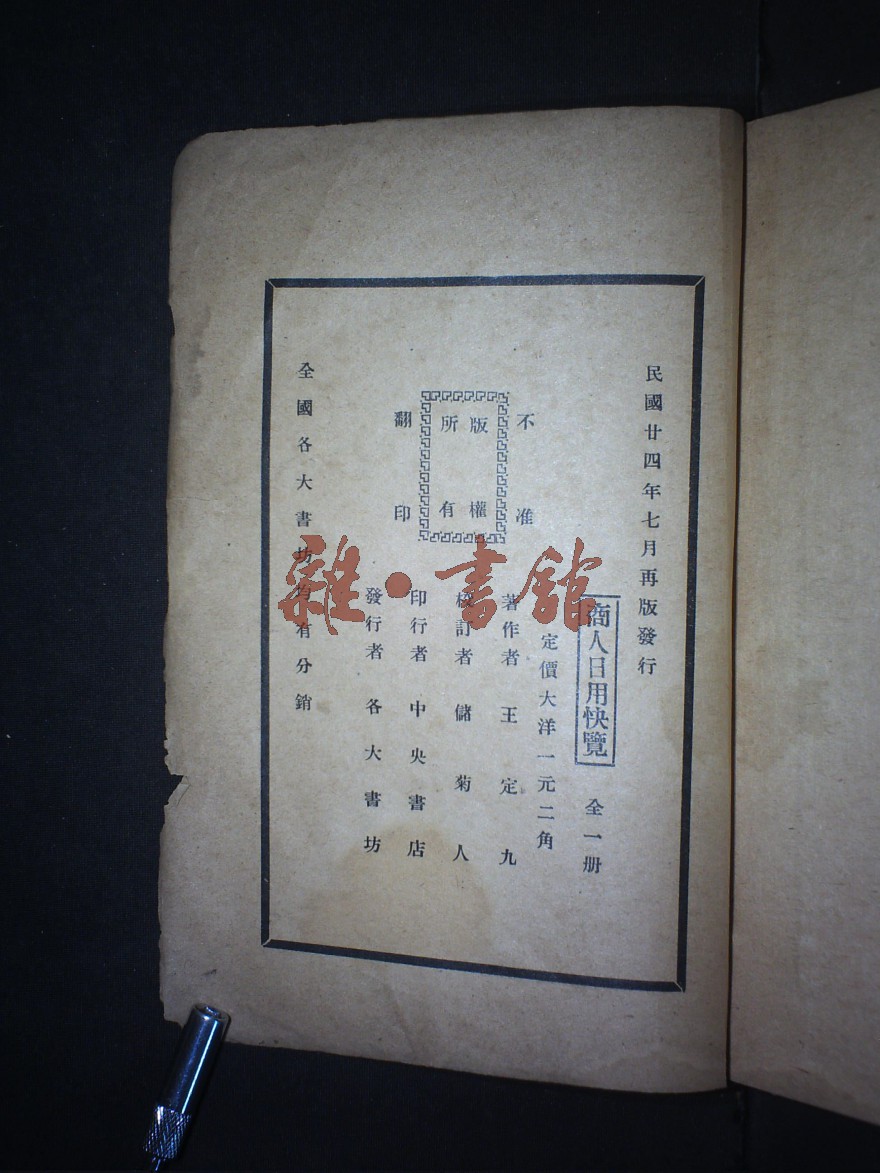 民國廿四年七月再版發行
商人日用快覽 全一册
定價大洋一元二角
著作者 王定九
校訂者 儲菊人
印行者 中央書店
發行者 各大書坊
不准
版權
所有
翻印
全國各大書坊均有分銷
雜·書館